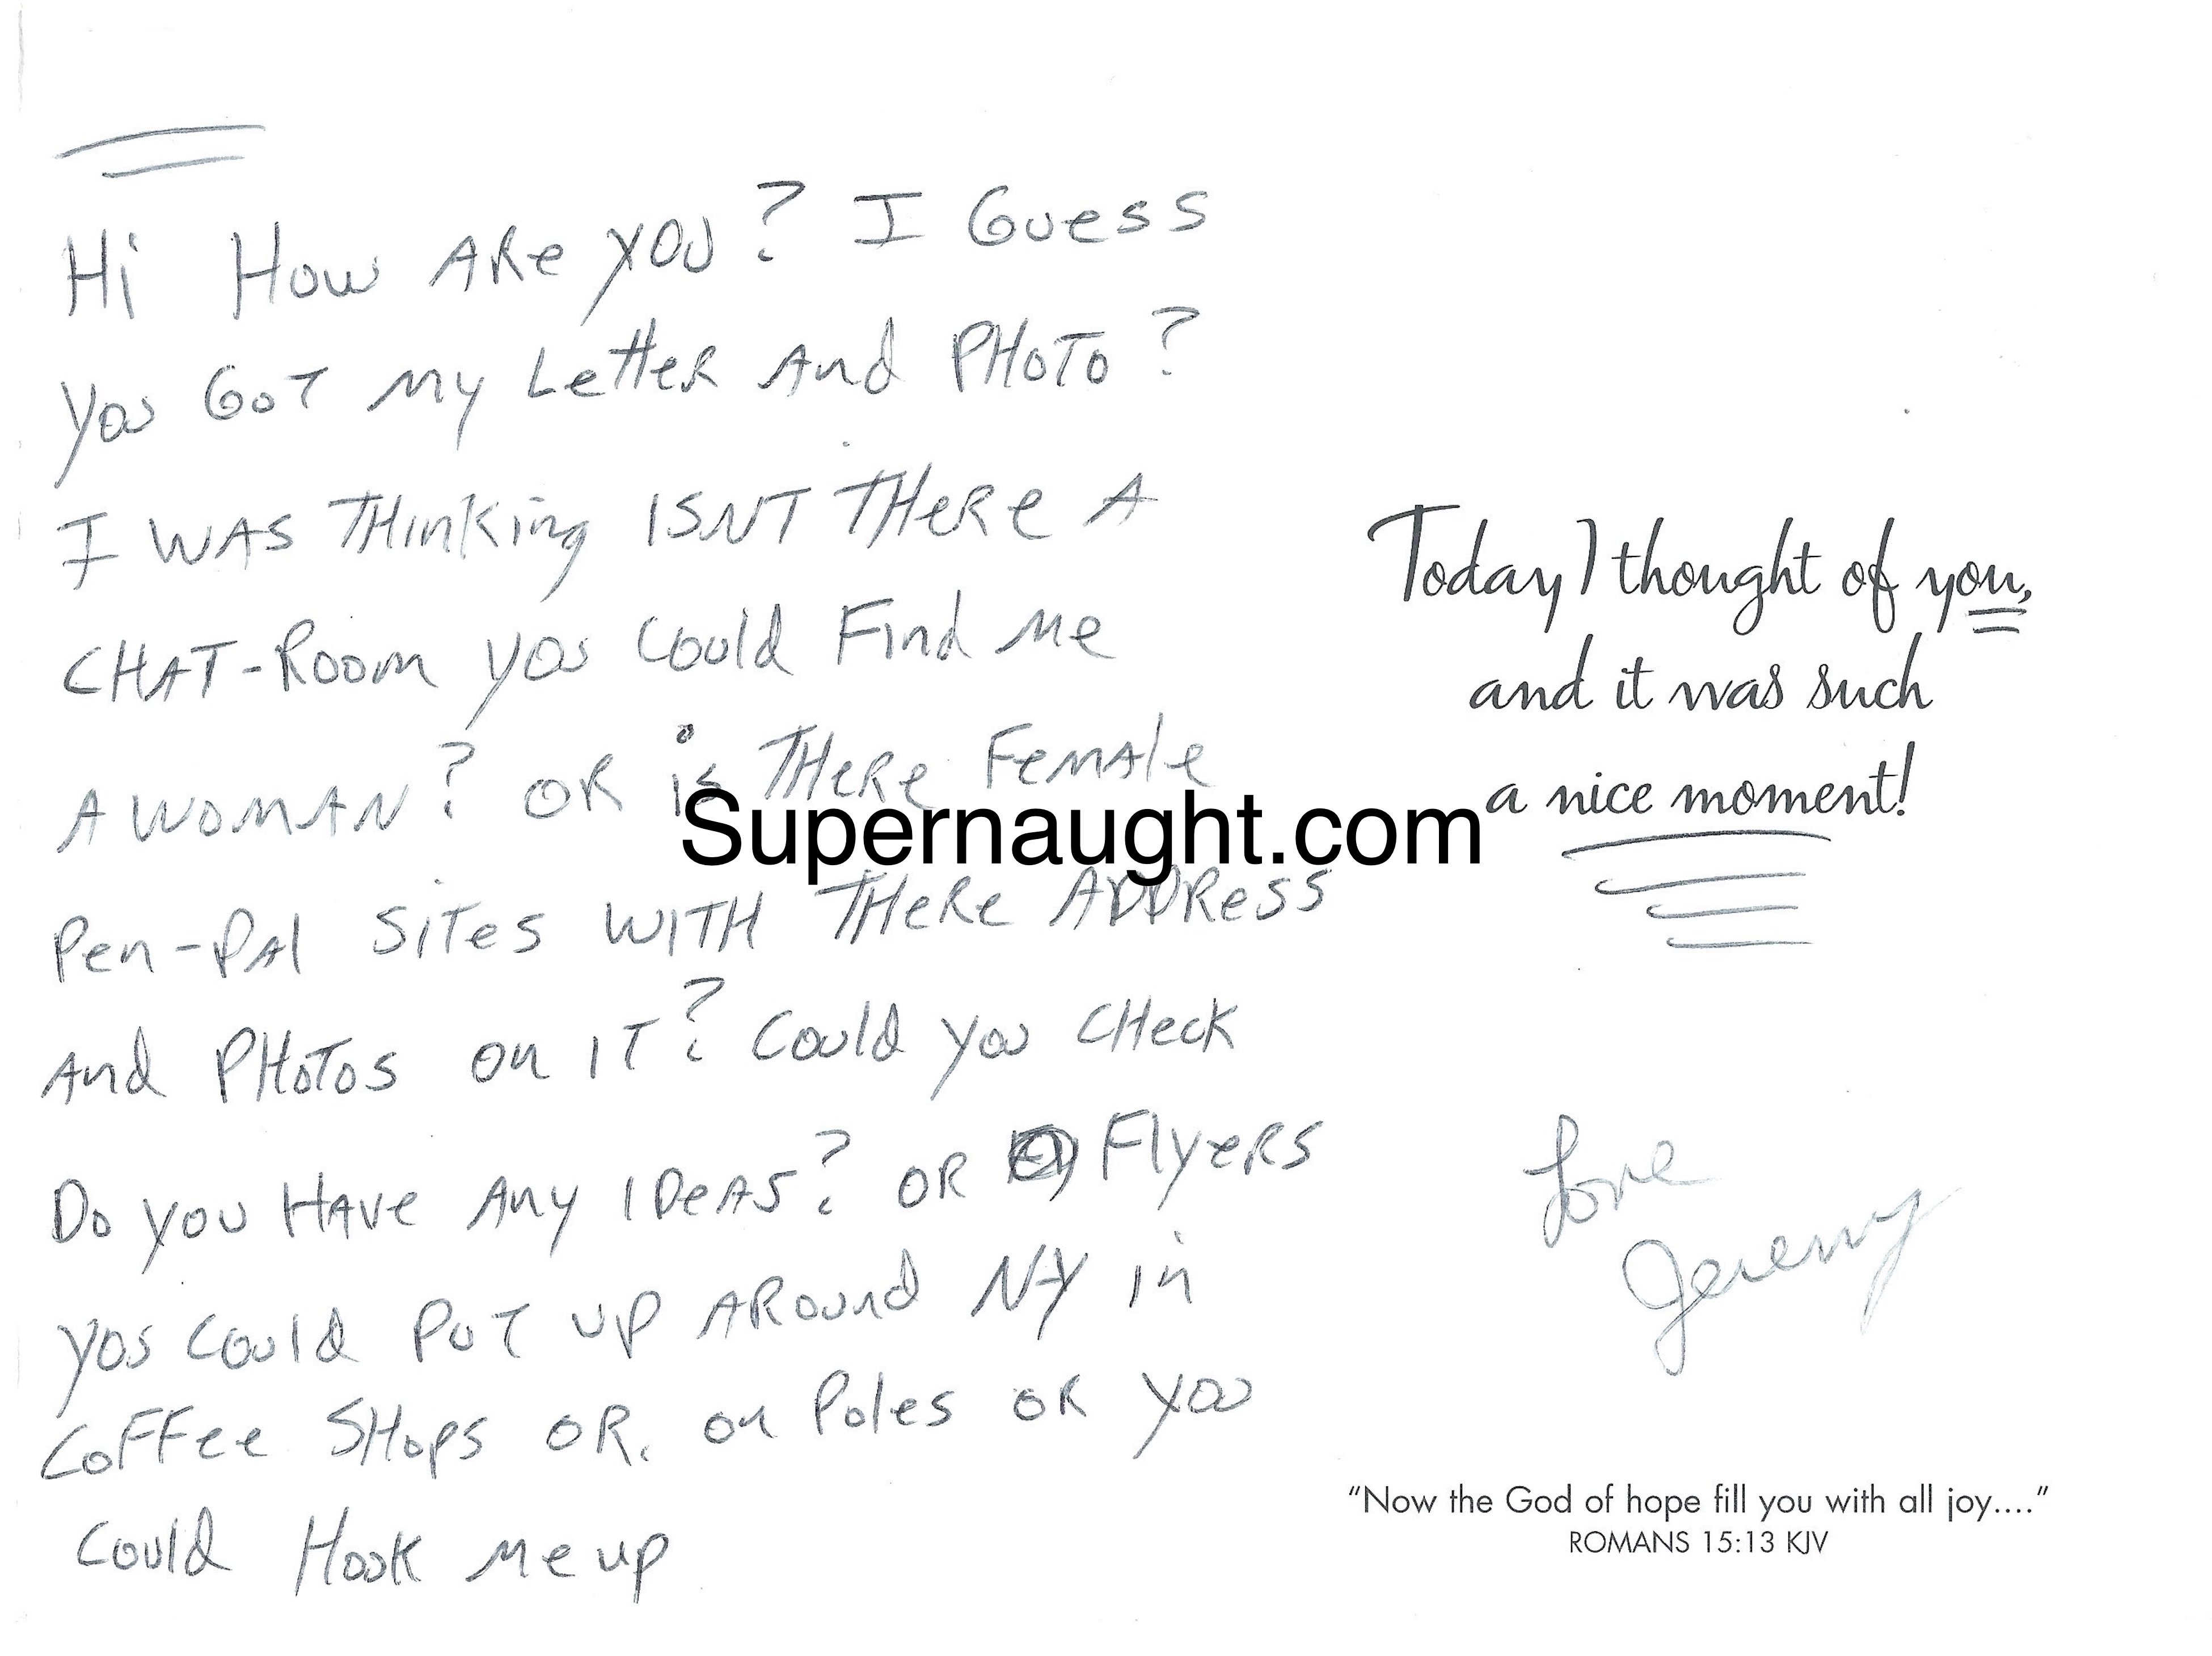 Hi How ARe you? I Guess
you GoT my LetteR And PHoTo?
I WAS THinKing ISNT THeRe A
CHAT-Room you Could Find me
A WOMAN? OR is THeRe FemAle
Pen-PAl SiTes WITH THeRe ADDRess
And PHoTos on IT? Could you CHeck
Do you HAve Any IDeAs? OR FlyeRs
you Could PuT up ARound NY in
CoFFee SHops OR. on Poles oR you
Could Hook me up
Today I thought of you,
and it was such
a nice moment!
Love
Jeremy
"Now the God of hope fill you with all joy...."
ROMANS 15:13 KJV
Supernaught.com